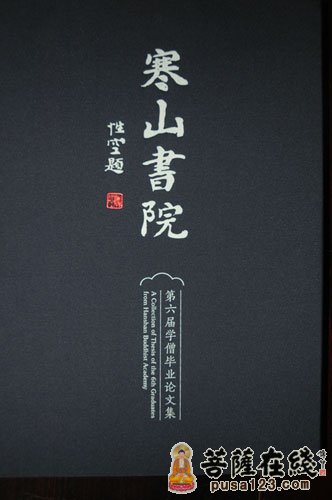 寒山書院
性空題
第六届学僧毕业论文集
A Collection of Thesis of the 6th Graduates
from Hanshan Buddhist Academy
菩薩在线
www.pusa123.com